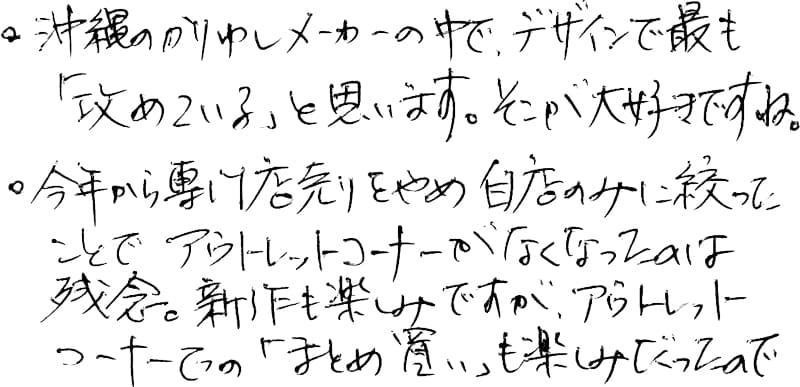 。沖縄のかりゆしメーカーの中で、デザインで最も
「攻めている」と思います。そこが大好きですね。
。今年から専門店売りをやめ自店のみに絞った
ことでアウトレットコーナーがなくなったのは
残念。新作も楽しみですが、アウトレット
コーナーでの「まとめ買い」も楽しみだったので